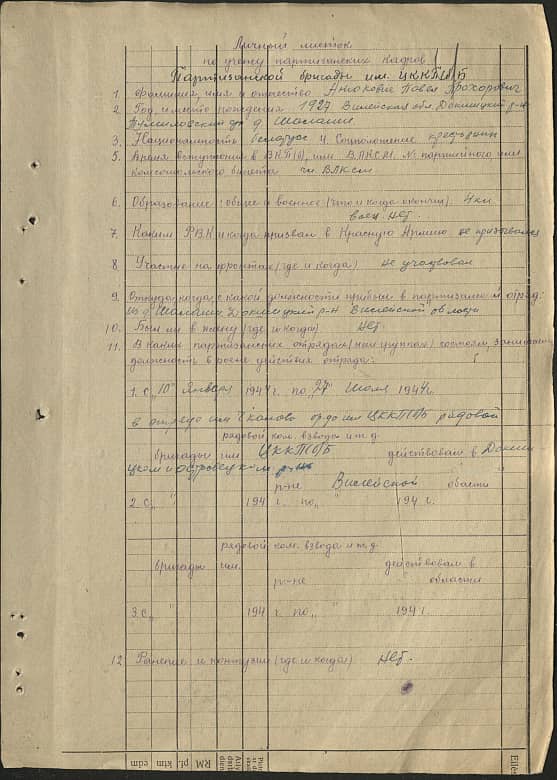 Личный листок
по учету партизанских кадров
Партизанской бригады им. ЦККП(б)Б
1. Фамилия, имя и отчество Анюкович Павел Прохорович
2. Год, и место рождения 1927 Вилейская обл. Докшицкий р-н
д. Шаланы
3. Национальность беларус 4. Соцположение крестьянин
5. Время вступления в ВКП(б), или ВЛКСМ № партийного или
комсомольского билета чл ВЛКСМ
6. Образование: общее и военное (что и когда окончил) 4 кл
воен нет.
7. Каким РВК и когда призван в Красную Армию не призывался
8 Участие на фронтах (где и когда) не участвовал
9. Откуда, когда с какой должности прибыл в партизанский отряд:
из д. Докшицкий р-н Вилейской области
10. Был ли в плену (где и когда) Нет.
11. В каких партизанских отрядах (или группах) состоял, занимаем
должность и время действия отряда:
1. С „10" Января 1944 г. по „27" Июля 1944 г.
в отряде им Чкалова бр-ды им ЦККП(б)Б рядовой
рядовой ком. взвода и т.д.
бригады им. ЦККП(б)Б действовал в Докши
цком и Островецком р-не
р-не Вилейской области
2 С „ " 194 г. по „ " 194 г.
рядовой ком. взвода и т.д.
бригады им. действовал в
р-не области
3. С „ " 194 г. по „ " 194 г
12. Ранение и контузии (где и когда) Нет.
RM pl. ktm edm